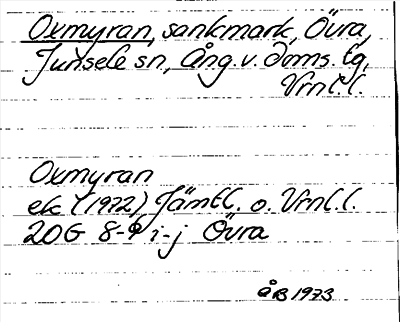 Oxmyran, sankmark, Övra,
Junsele sn, Ång. v. doms. tg,
Vrnl.l.
Oxmyran
ek (1972) Jämtl. o. Vrnl.l.
20G 8-9 i-j Övra
ÅB 1973